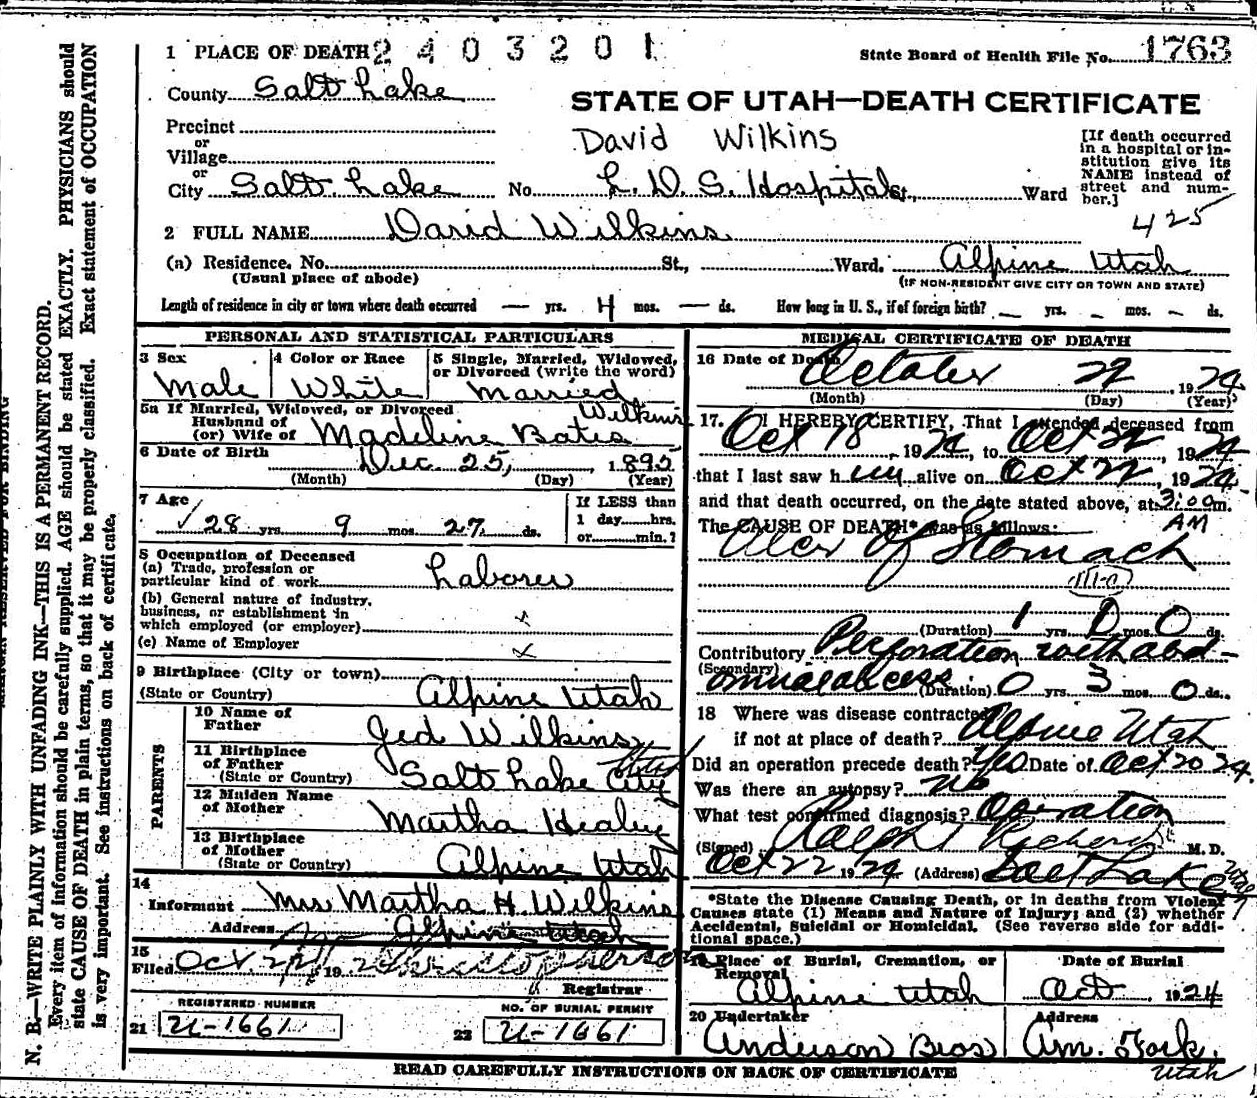 1 PLACE OF DEATH 2403201
State Board of Health File No. 1763
County Salt Lake
STATE OF UTAH—DEATH CERTIFICATE
Precinct
or
Village
or
City Salt Lake No. L. D. S. Hospital St., Ward
David Wilkins
[If death occurred
in a hospital or in-
stitution give its
NAME instead of
street and num-
ber.]
425
2 FULL NAME David Wilkins
(a) Residence. No. St., Ward. Alpine Utah
(Usual place of abode) (IF NON-RESIDENT GIVE CITY OR TOWN AND STATE)
Length of residence in city or town where death occurred — yrs. 4 mos. — ds. How long in U. S., if of foreign birth? — yrs. - mos. - ds.
PERSONAL AND STATISTICAL PARTICULARS
3 Sex
Male
4 Color or Race
White
5 Single, Married, Widowed,
or Divorced (write the word)
Married
5a If Married, Widowed, or Divorced
Husband of
(or) Wife of Madeline Bates Wilkins
6 Date of Birth
Dec. 25, 1895
(Month) (Day) (Year)
7 Age
28 yrs. 9 mos. 27 ds.
If LESS than
1 day......hrs.
or......min.?
8 Occupation of Deceased
(a) Trade, profession or
particular kind of work Laborer
(b) General nature of industry,
business, or establishment in
which employed (or employer) x
(c) Name of Employer x
9 Birthplace (City or town)
(State or Country) Alpine Utah
PARENTS
10 Name of
Father Jed Wilkins
11 Birthplace
of Father
(State or Country) Salt Lake City Utah
12 Maiden Name
of Mother Martha Healey
13 Birthplace
of Mother
(State or Country) Alpine Utah
14
Informant Mrs Martha H. Wilkins
Address Alpine Utah
15
Filed Oct. 24, 192
Registrar
REGISTERED NUMBER
21 U-1661
NO. OF BURIAL PERMIT
22 U-1661
MEDICAL CERTIFICATE OF DEATH
16 Date of Death October 22, 1924
(Month) (Day) (Year)
17. I HEREBY CERTIFY, That I attended deceased from
Oct 18, 1924, to Oct 22, 1924
that I last saw him alive on Oct 22, 1924
and that death occurred, on the date stated above, at 3:00 m.
AM
The CAUSE OF DEATH* was as follows:
Ulcer of Stomach
111-a
(Duration) 1 yrs. 0 mos. 0 ds.
Contributory Perforation with abd-
(Secondary) ominal abcess (Duration) 0 yrs. 3 mos. 0 ds.
18 Where was disease contracted
if not at place of death? Alpine Utah
Did an operation precede death? Yes Date of. Oct 20 24.
Was there an autopsy? No
What test confirmed diagnosis? Operation
(Signed) Ralph T Richards M. D.
Oct 22 1924 (Address) Salt Lake Utah
*State the Disease Causing Death, or in deaths from Violent
Causes state (1) Means and Nature of Injury; and (2) whether
Accidental, Suicidal or Homicidal. (See reverse side for addi-
tional space.)
19 Place of Burial, Cremation, or
Removal
Alpine Utah
Date of Burial
Oct 1924
20 Undertaker
Anderson Bros
Address
Am. Fork.
Utah
READ CAREFULLY INSTRUCTIONS ON BACK OF CERTIFICATE
N. B.—WRITE PLAINLY WITH UNFADING INK—THIS IS A PERMANENT RECORD.
Every item of information should be carefully supplied. AGE should be stated EXACTLY. PHYSICIANS should
state CAUSE OF DEATH in plain terms, so that it may be properly classified. Exact statement of OCCUPATION
is very important. See instructions on back of certificate.